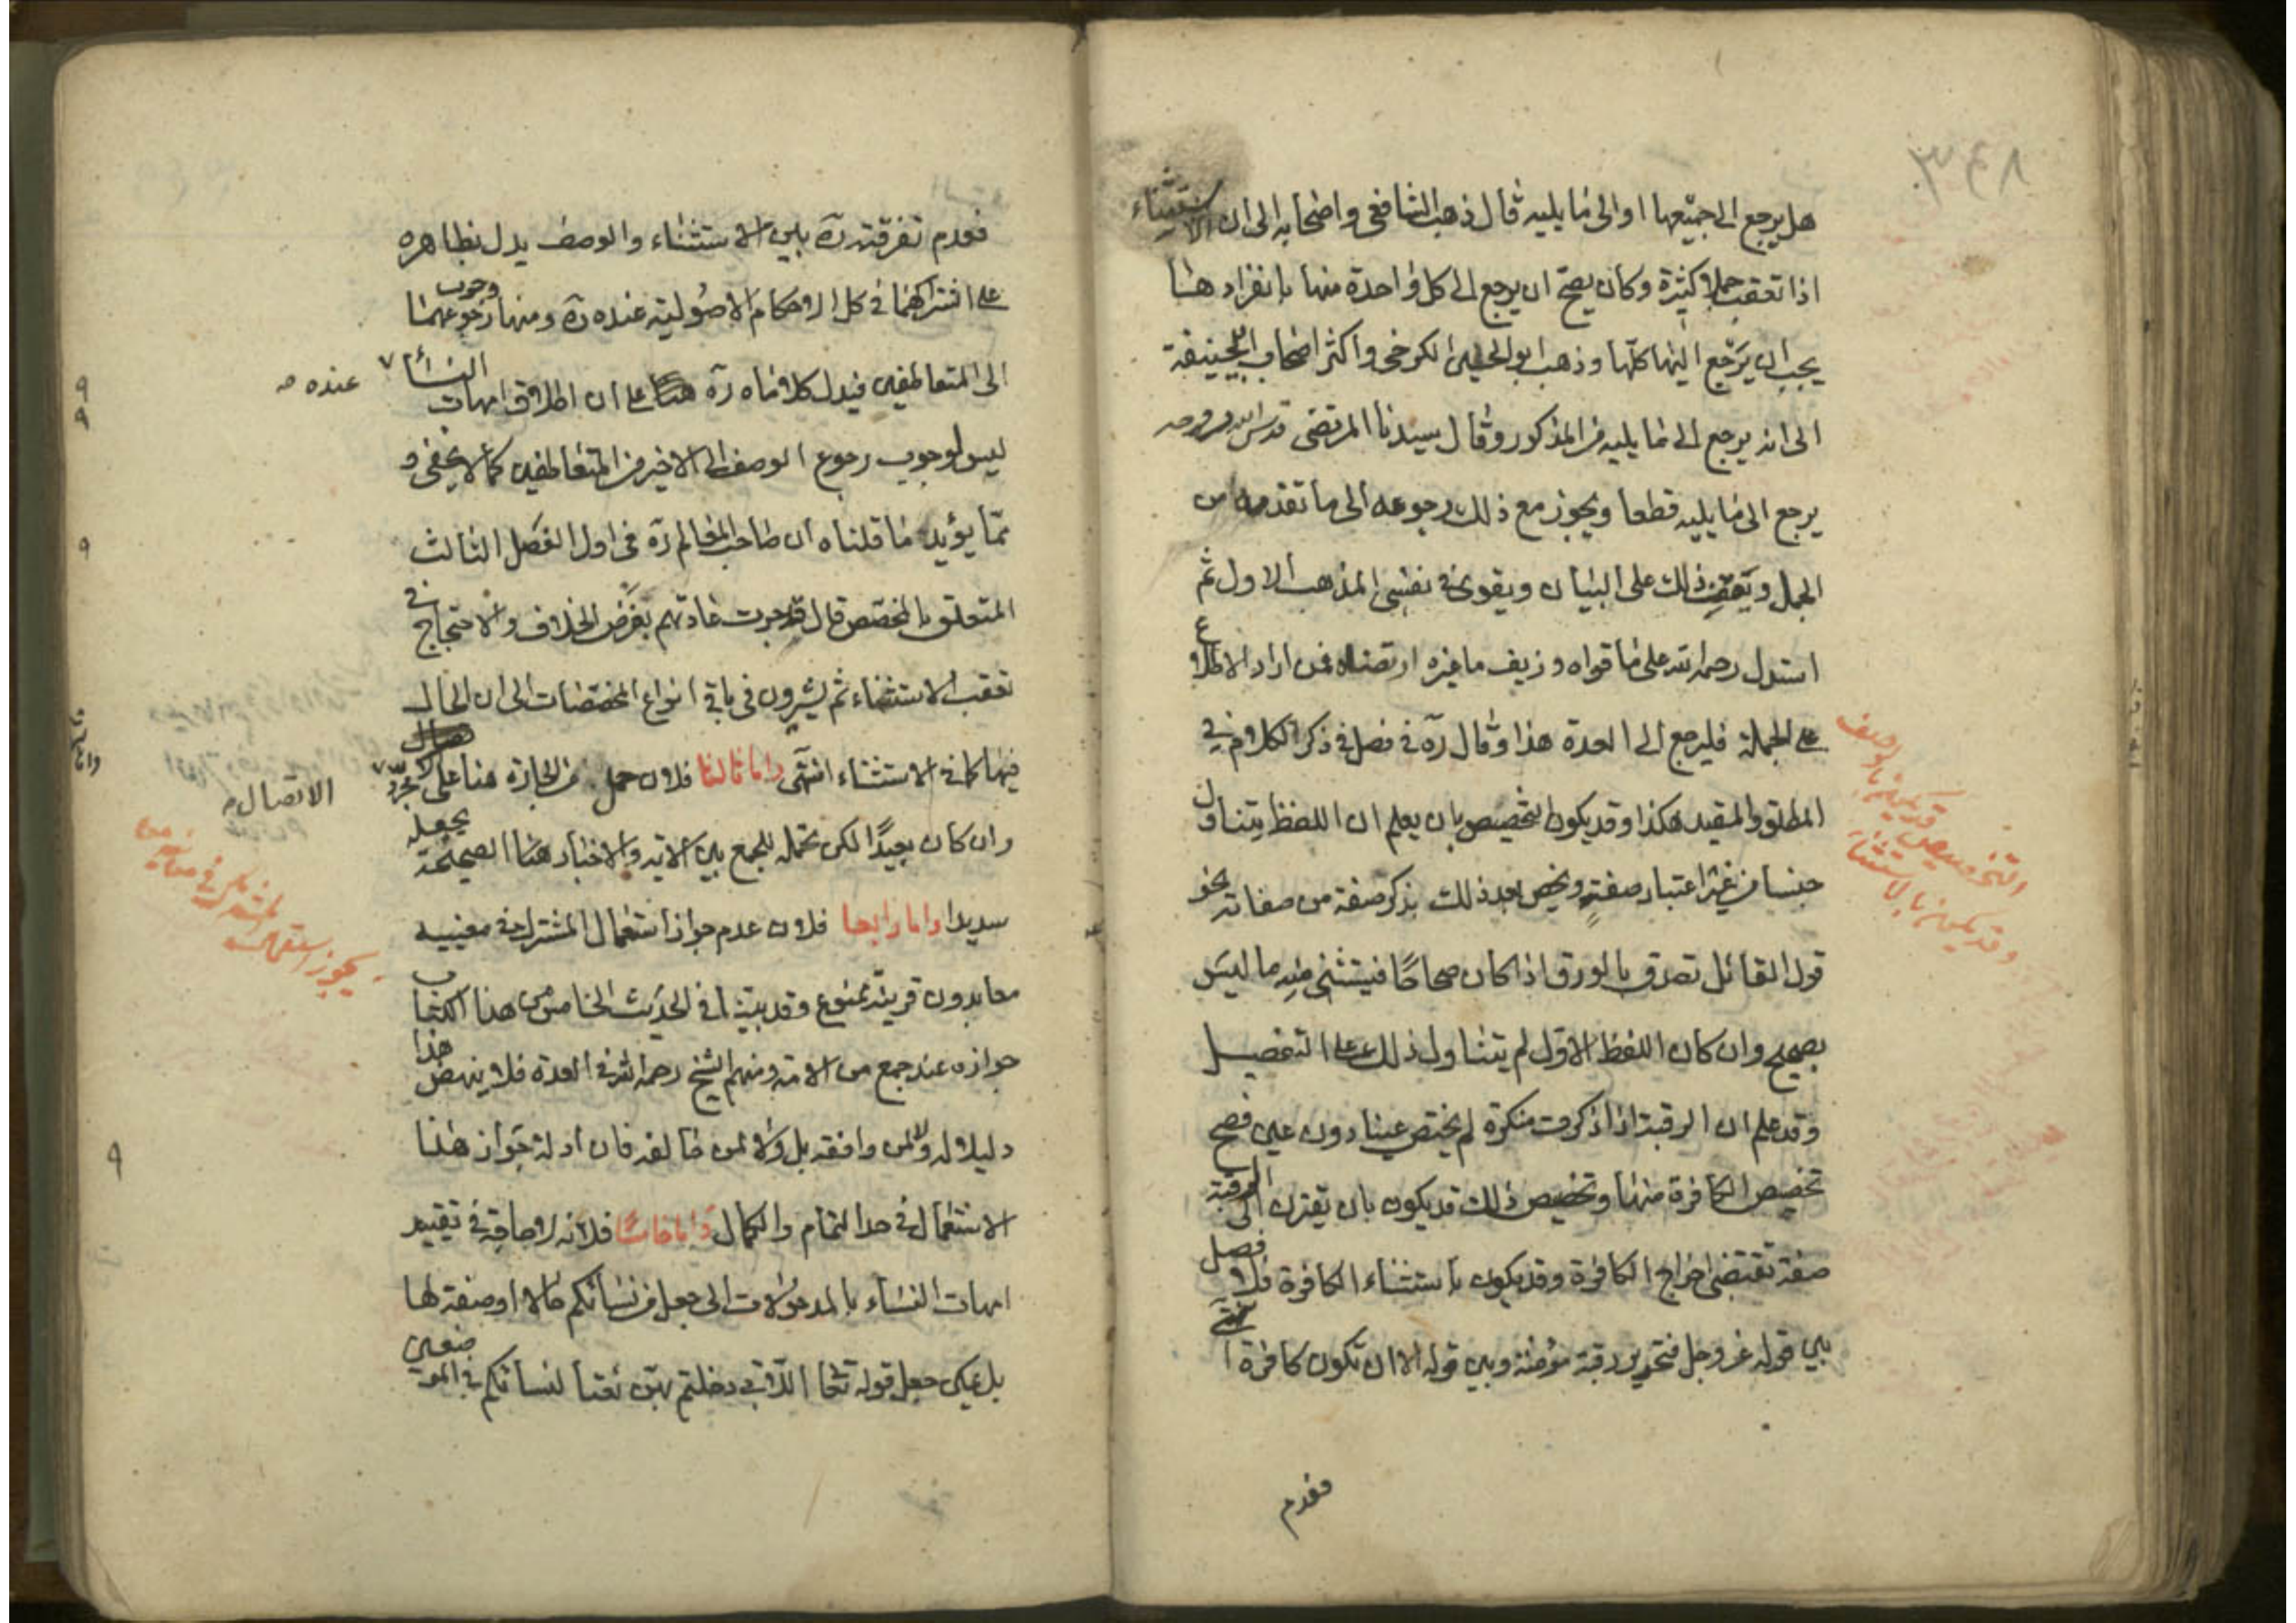 ٣٤٨
هل يرجع الى جميعها او الى ما يليه قال ذهب الشافعى واصحابه الى ان الاستثناء
اذا تعقب جملا كثيرة وكان يصح ان يرجع الى كل واحدة منها بانفرادها
يجب ان يرجع اليها كلها وذهب ابو الحسن الكرخى واكثر اصحاب ابى حنيفة
الى انه يرجع الى ما يليه من المذكور وقال سيدنا المرتضى قدس الله روحه
يرجع الى ما يليه قطعا ويجوز مع ذلك رجوعه الى ما تقدمه من
الجمل ويقف ذلك على البيان ويقوى فى نفسى المذهب الاول ثم
استدل رحمه الله على ما قواه وزيف ما غيره ارتضاه فمن اراد الاطلاع
على الجملة فليرجع الى العدة هذا وقال ره فى فصل فى ذكر الكلام فى
المطلق والمقيد هكذا وقد يكون التخصيص بان يعلم ان اللفظ يتناول
جنسا من غير اعتبار صفة ويخص بعد ذلك بذكر صفة من صفاته نحو
قول القائل تصدق بالورق اذا كان صحاحا فيستثنى منه ما ليس
بصحيح وان كان اللفظ الاول لم يتناول ذلك على التفصيل
وقد علم ان الرقبة اذا ذكرت منكرة لم يختص عينا دون عين فصح
تخصيص الكافرة منها وتخصيص ذلك قد يكون بان يقترن الى الرقبة
صفة تقتضى اخراج الكافرة وقد يكون باستثناء الكافرة فلا فصل
بين قوله عز وجل فتحرير رقبة مؤمنة وبين قوله الا ان تكون كافرة انتهى
التخصيص قد يكون بالوصف
وقد يكون بالاستثناء
فعدم
فعدم تفرقته ره بين الاستثناء والوصف يدل بظاهره
على اشتراكهما فى كل الاحكام الاصولية عنده ره ومنها وجوب رجوعهما
الى المتعاطفين فيدل كلاماه ره هنا على ان اطلاق امهات النساء
عنده صح
ليس لوجوب رجوع الوصف الى الاخير من المتعاطفين كما لا يخفى و
مما يؤيد ما قلناه ان صاحب المعالم ره فى اول الفصل الثالث
المتعلق بالمخصص قال قد جرت عادتهم بفرض الخلاف والاحتجاج فى
تعقب الاستثناء ثم يشيرون فى باقى انواع المخصصات الى ان الحال
فيها كما فى الاستثناء انتهى واما ثالثا فلان حمل من الجارة هنا على مجرد
الاتصال
وان كان بعيدا لكن نحمله للجمع بين الاية والاخبار هنا الصحيحة يجعله
سديدا واما رابعا فلان عدم جواز استعمال المشترك فى معنييه
معا بدون قرينة ممنوع وقد بينا فى الحديث الخامس من هذا الكتاب
يجوز استعمال المشترك فى معانيه
جوازه عند جمع من الامة ومنهم الشيخ رحمه الله فى العدة فلا ينهض هذا
دليلا له ولا لمن وافقه بل ولا لمن خالفه فان ادلة جواز هذا
الاستعمال فى حد التمام والكمال واما خامسا فلانه لا حاجة فى تقييد
امهات النساء بالمدخولات الى جعل من نسائكم حالا او صفة لها
بل يمكن جعل قوله تعالى اللاتى دخلتم بهن نعتا لنسائكم فى الموضعين